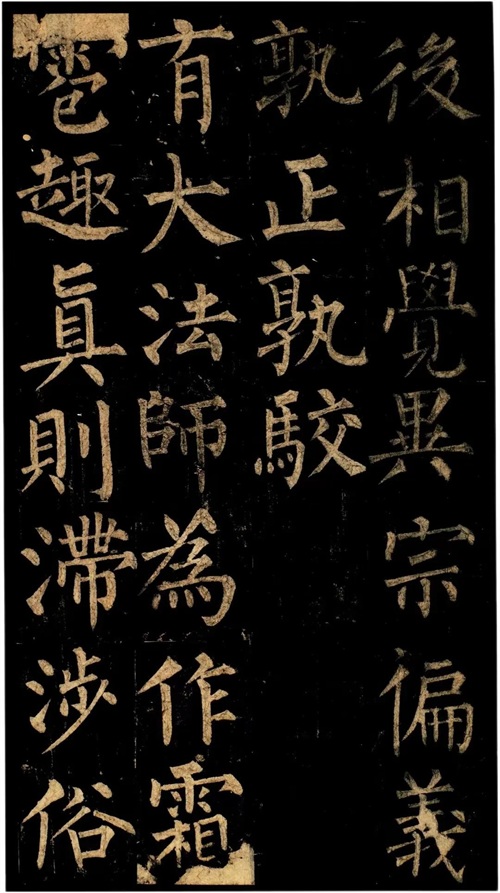 後相覺異宗偏義
孰正孰駮
有大法師為作霜
雹趣眞則滯涉俗